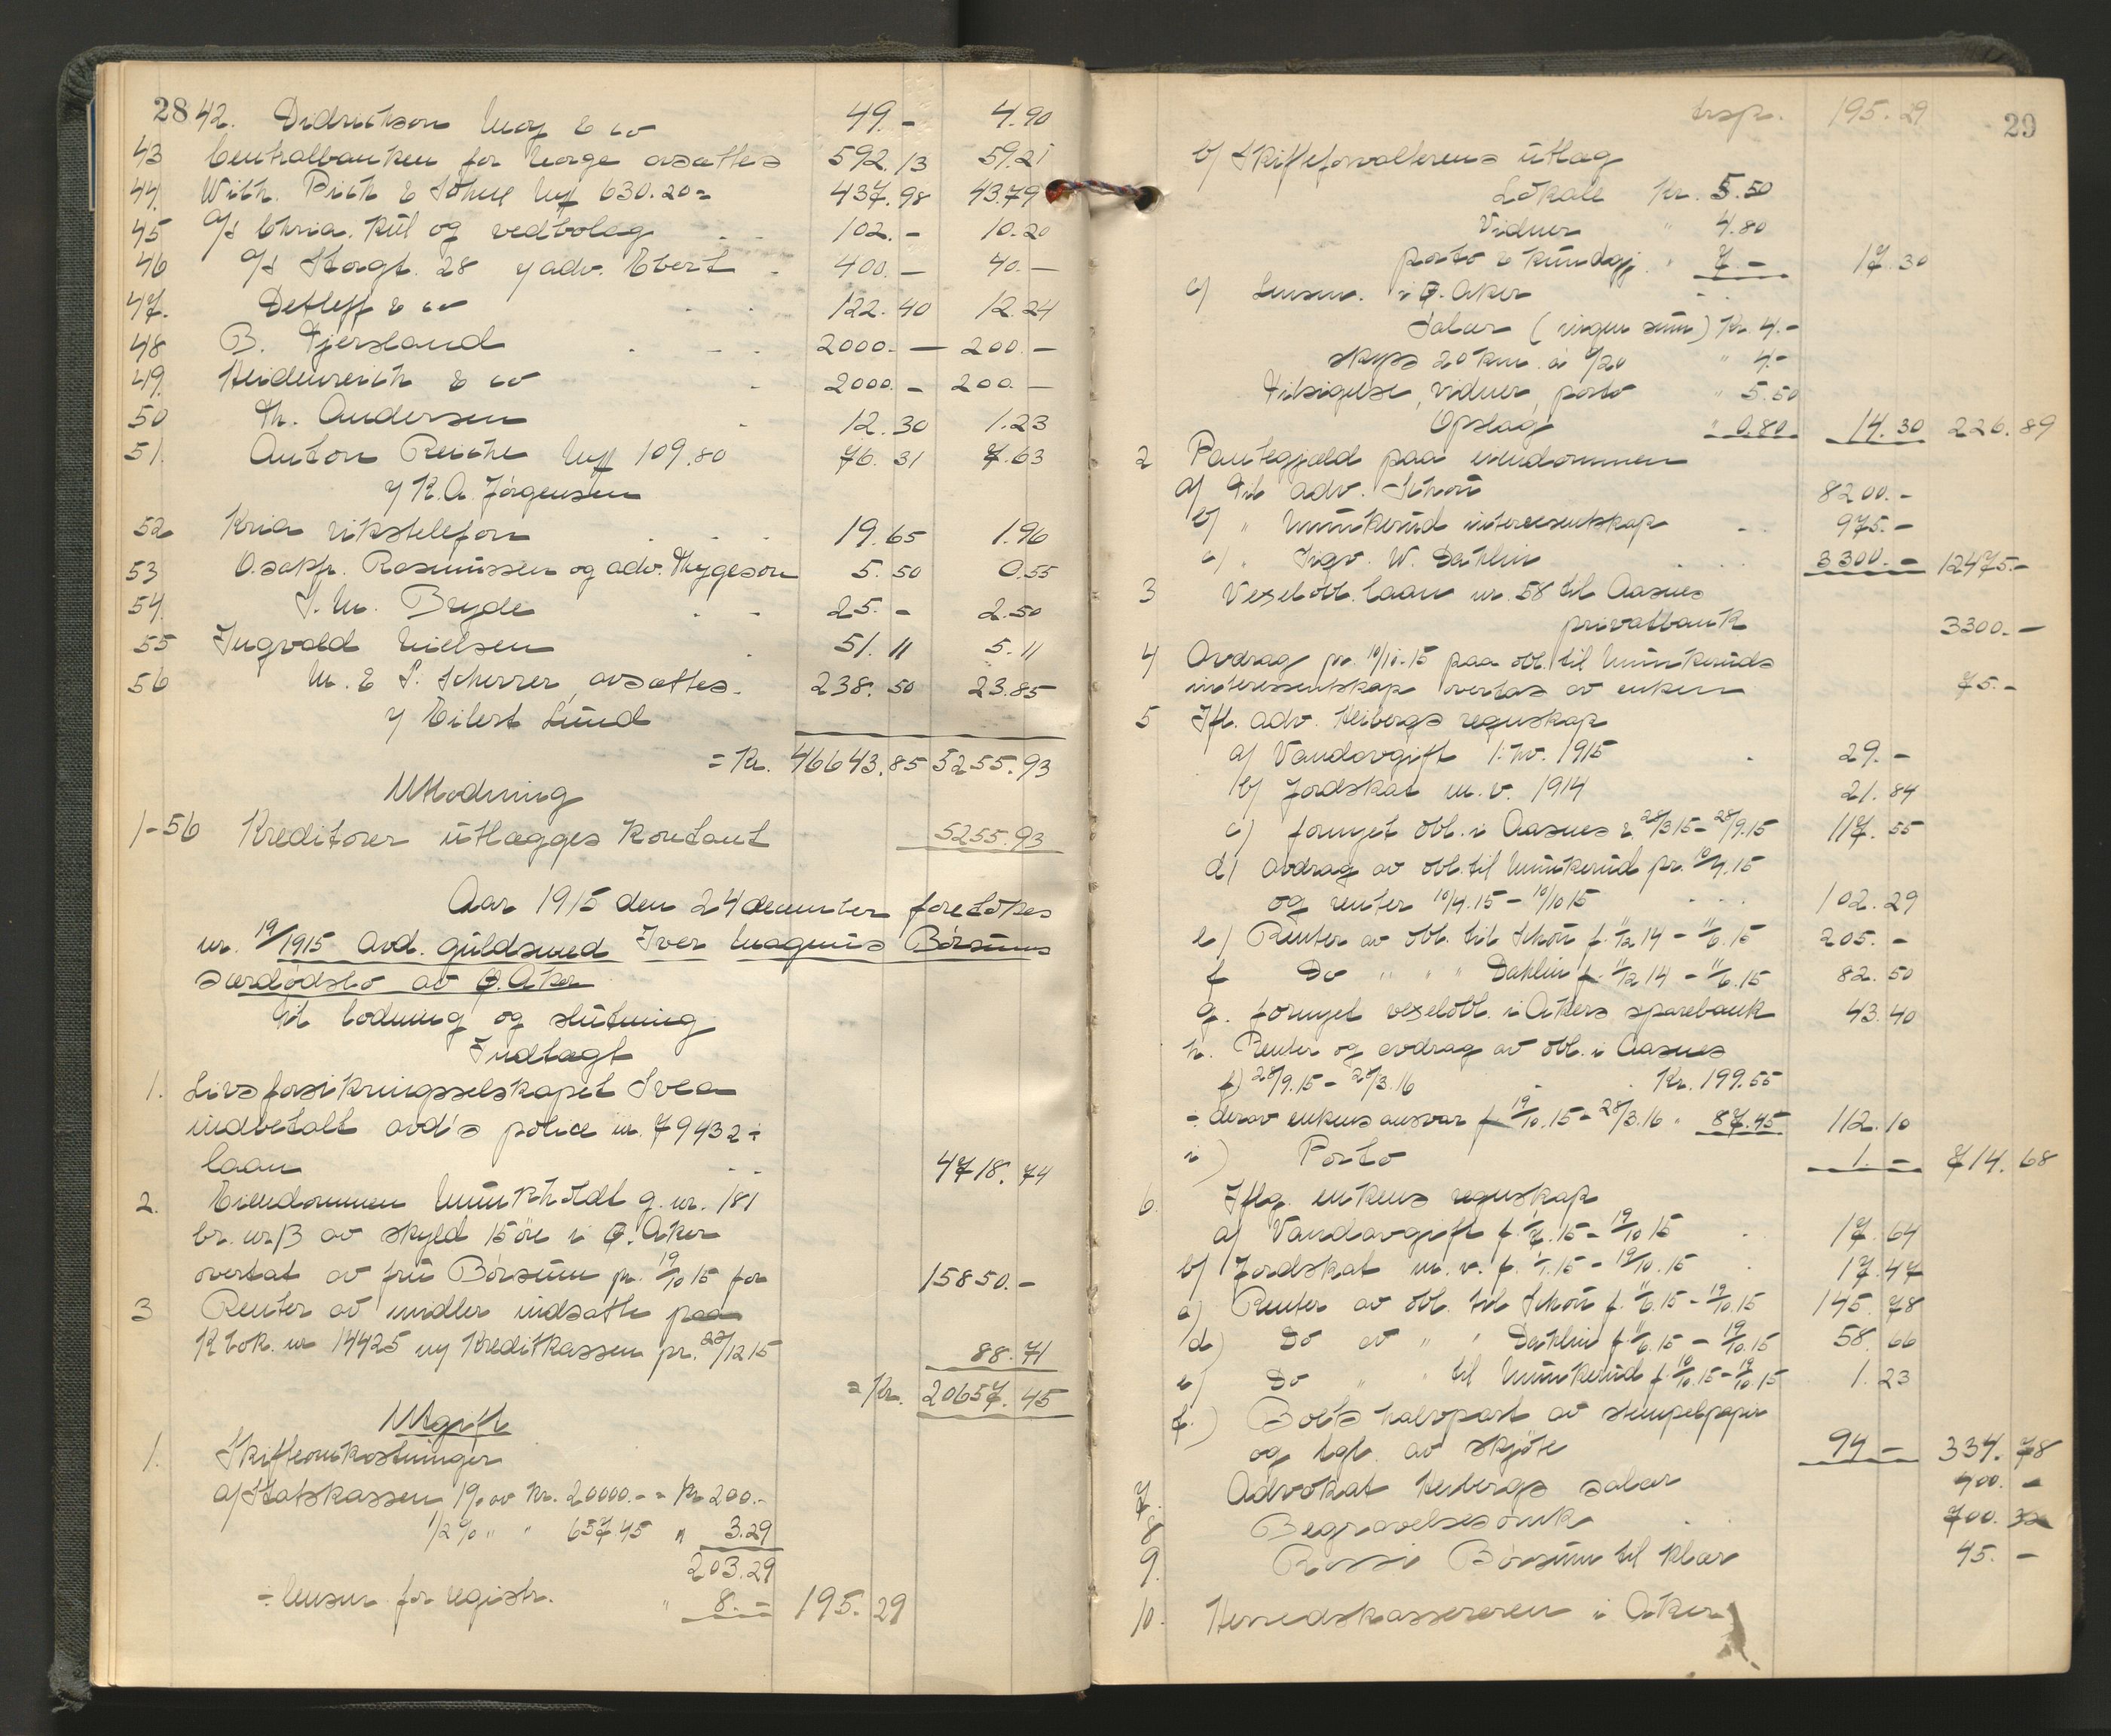 28
42. Didrichson & co 49.- 4.90
43 Centralbanken for Norge avsættes 592.13 59.21
44. With. Pich & Söhne 630.20 = 437.98 43.79
45 A/s Chria. Kul og vedbolag 102.- 10.20
46 A/s Storgt. 28 v/ adv. Ebert 400.- 40.-
47. Detleff & co 122.40 12.24
48 B. Tjersland 2000.- 200.-
49. Heidenreich & co 2000.- 200.-
50 Th. Andersen 12.30 1.23
51. Anton Reiche 109.80 76.31 7.63
v/ K.A. Jørgensen
52 Kria rikstelefon 19.65 1.96
53 O.sakf. Rasmussen og adv. Thygeson 5.50 0.55
54. S.M. Bryde 25.- 2.50
55 Ingvald Nielsen 51.11 5.11
56 M. & P. Scherrer, avsættes. 238.50 23.85
v/ Eilert Lund
= Kr. 46643.85 5255.93
Utlodning
1-56 Kreditorer utlægges kontant 5255.93
Aar 1915 den 24 december foretokes
nr. 19/1915 avd. guldsmed Iver Magnus Børsums
særdødsbo av Ø. Aker
til lodning og slutning
Indtægt
1. Livsforsikringsselskapet Svea
indbetalt avd's police nr. 79432 ÷
laan 4718.74
2. Eiendommen Munkholdt g. nr. 181
br. nr. 13 av skyld 15 øre i Ø. Aker
overtat av fru Børsum pr. 19/10 15 for 15850.-
3 Renter av midler indsatte paa
K bok. nr 14425 i ny Kreditkassen pr. 22/12 15 88.71
= Kr. 20657.45
Utgift
1. Skifteomkostninger
a/ Statskassen 1% av Kr. 20000.- = Kr 200.-
1/2 % " " 657.45 " 3.29
203.29
÷ lensm. for registr. " 8.- 195.29
29
trsp. 195.29
b/ Skifteforvalterens utlæg
Lokale Kr. 5.50
Vidner " 4.80
porto & kundgj. " 7.- 17.30
c/ Lensm. i Ø. Aker
Salær (ingen sum) Kr. 4.-
skyss 20 km. à /20 " 4.-
Tilsigelse, vidner, porto " 5.50
Opslag " 0.80 14.30 226.89
2 Pantegjæld paa eiendommen
a) Til adv. Schou 8200.-
b/ " Munkerud interessentskap 975.-
c/ " Sigv. W. Dahlin 3300.- 12475.-
3 Vexelobl. laan nr. 58 til Aasnes
privatbank 3300.-
4 Avdrag pr. 10/10.15 paa obl. til Munkeruds
interessentskap overtas av enken 75.-
5 Ifl. adv. Heibergs regnskap
a/ Vandavgift 1. hv. 1915 29.-
b/ Jordskat m.v. 1914 21.84
c) fornyet obl. i Aasnes 28/3 15 - 28/9.15 117.55
d) avdrag av obl. til Munkerud pr. 10/4.15
og renter 10/4.15 - 10/10 15 102.29
e) Renter av obl. til Schou f. 11/12 14 - 11/6.15 205.-
f Do " " " Dahlin f. 11/12 14 - 11/6.15 82.50
g. fornyet vexelobl. i Akers sparebank 43.40
h. Renter og avdrag av obl. i Aasnes
f) 28/9.15 - 28/3.16 Kr. 199.55
÷ derav enkens ansvar f. 19/10.15 - 28/3.16 " 87.45 112.10
i) Porto 1.- 714.68
6. Iflg. enkens regnskap
a) Vandavgift f. 1/7.15 - 19/10 15 17.64
b/ Jordskat m.v. f. 1/1.15 - 19/10.15 17.47
c) Renter av obl. til Schou f. 11/6.15 - 19/10.15 145.78
d) Do av " " Dahlin f. 11/6.15 - 19/10.15 58.66
e) Do " " til Munkerud f. 10/10.15 - 19/10.15 1.23
f.) Boets halvpart av stempelpapir
og tgl. av skjøte 94- 334.78
7. Advokat Heibergs salær 400.-
8 Begravelsesomk 700.32
9. Rossi Børsum til klær 45.-
10. Herredskassereren i Aker